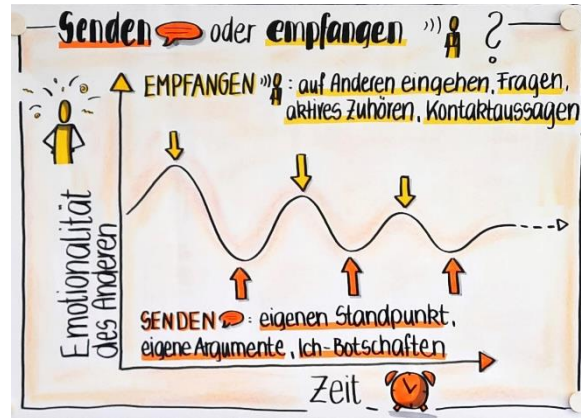 Senden oder empfangen ?
EMPFANGEN : auf Anderen eingehen, Fragen,
aktives Zuhören, Kontaktaussagen
Emotionalität
des Anderen
SENDEN : eigenen Standpunkt,
eigene Argumente, Ich-Botschaften
Zeit